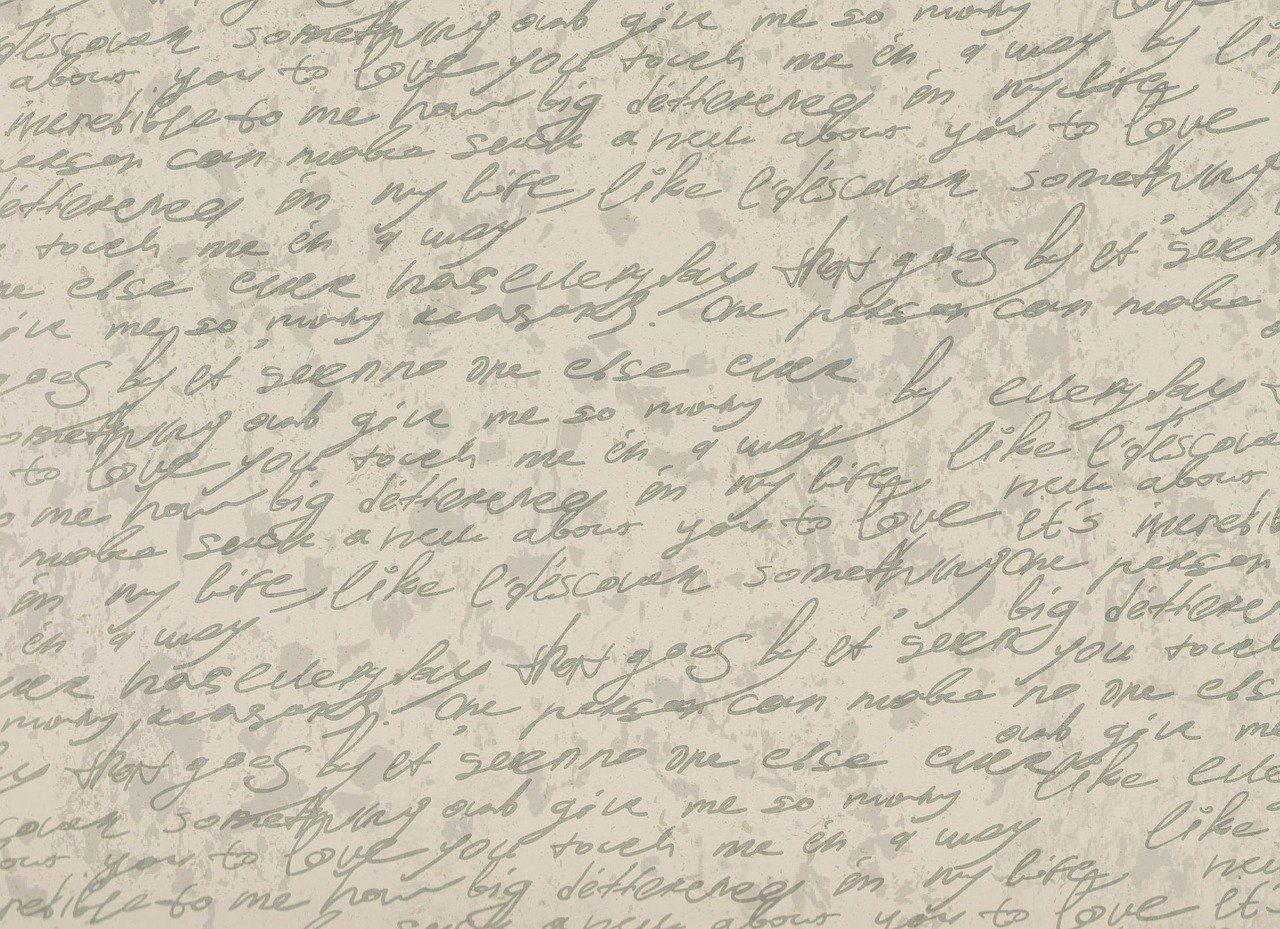 discover something and give me so many love
about you to love you touch me in a way by li
incredible to me how big difference in my life
person can make such a new about you to love
difference in my life, like I discover something
touch me in a way
ne else ever has everyday that goes by it seem
give me, so many reasons. One person can make
goes by it seem no one else ever by everyday
something and give me so many
to love you touch me in a way like I discove
me how big difference in my life new about
make such a new about you to love it's incredi
in my life, like I discover something One person
big differe
in a way
ever has everyday that goes by it seem you touch
many, reasons. One person can make no one els
and give me
that goes by it seem no one else ever like eve
cover something and give me so many
you to love you touch me in a way like
redible to me how big difference in my life new
such a new about you to love it's